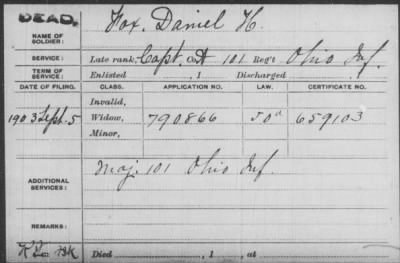 DEAD.
NAME OF SOLDIER: Fox, Daniel H.
SERVICE: Late rank, Capt, Co. A 101 Reg't Ohio Inf.
TERM OF SERVICE: Enlisted , 1 Discharged , 1
DATE OF FILING. CLASS. APPLICATION NO. LAW. CERTIFICATE NO.
Invalid,
1903 Sept. 5 Widow, 790866 J 0 d 659103
Minor,
ADDITIONAL SERVICES: Maj. 101 Ohio Inf.
REMARKS:
Died , 1 , at